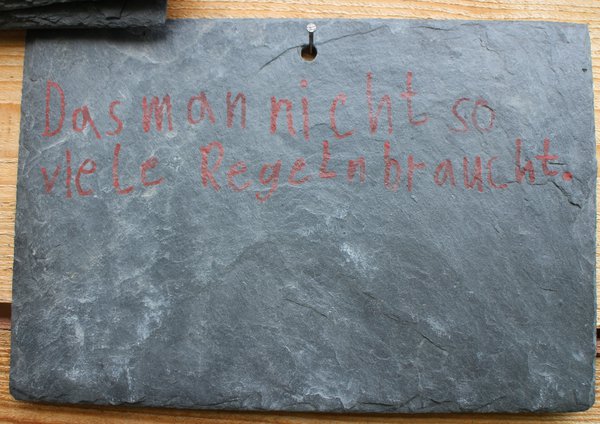 Das man nicht so
viele Regeln braucht.